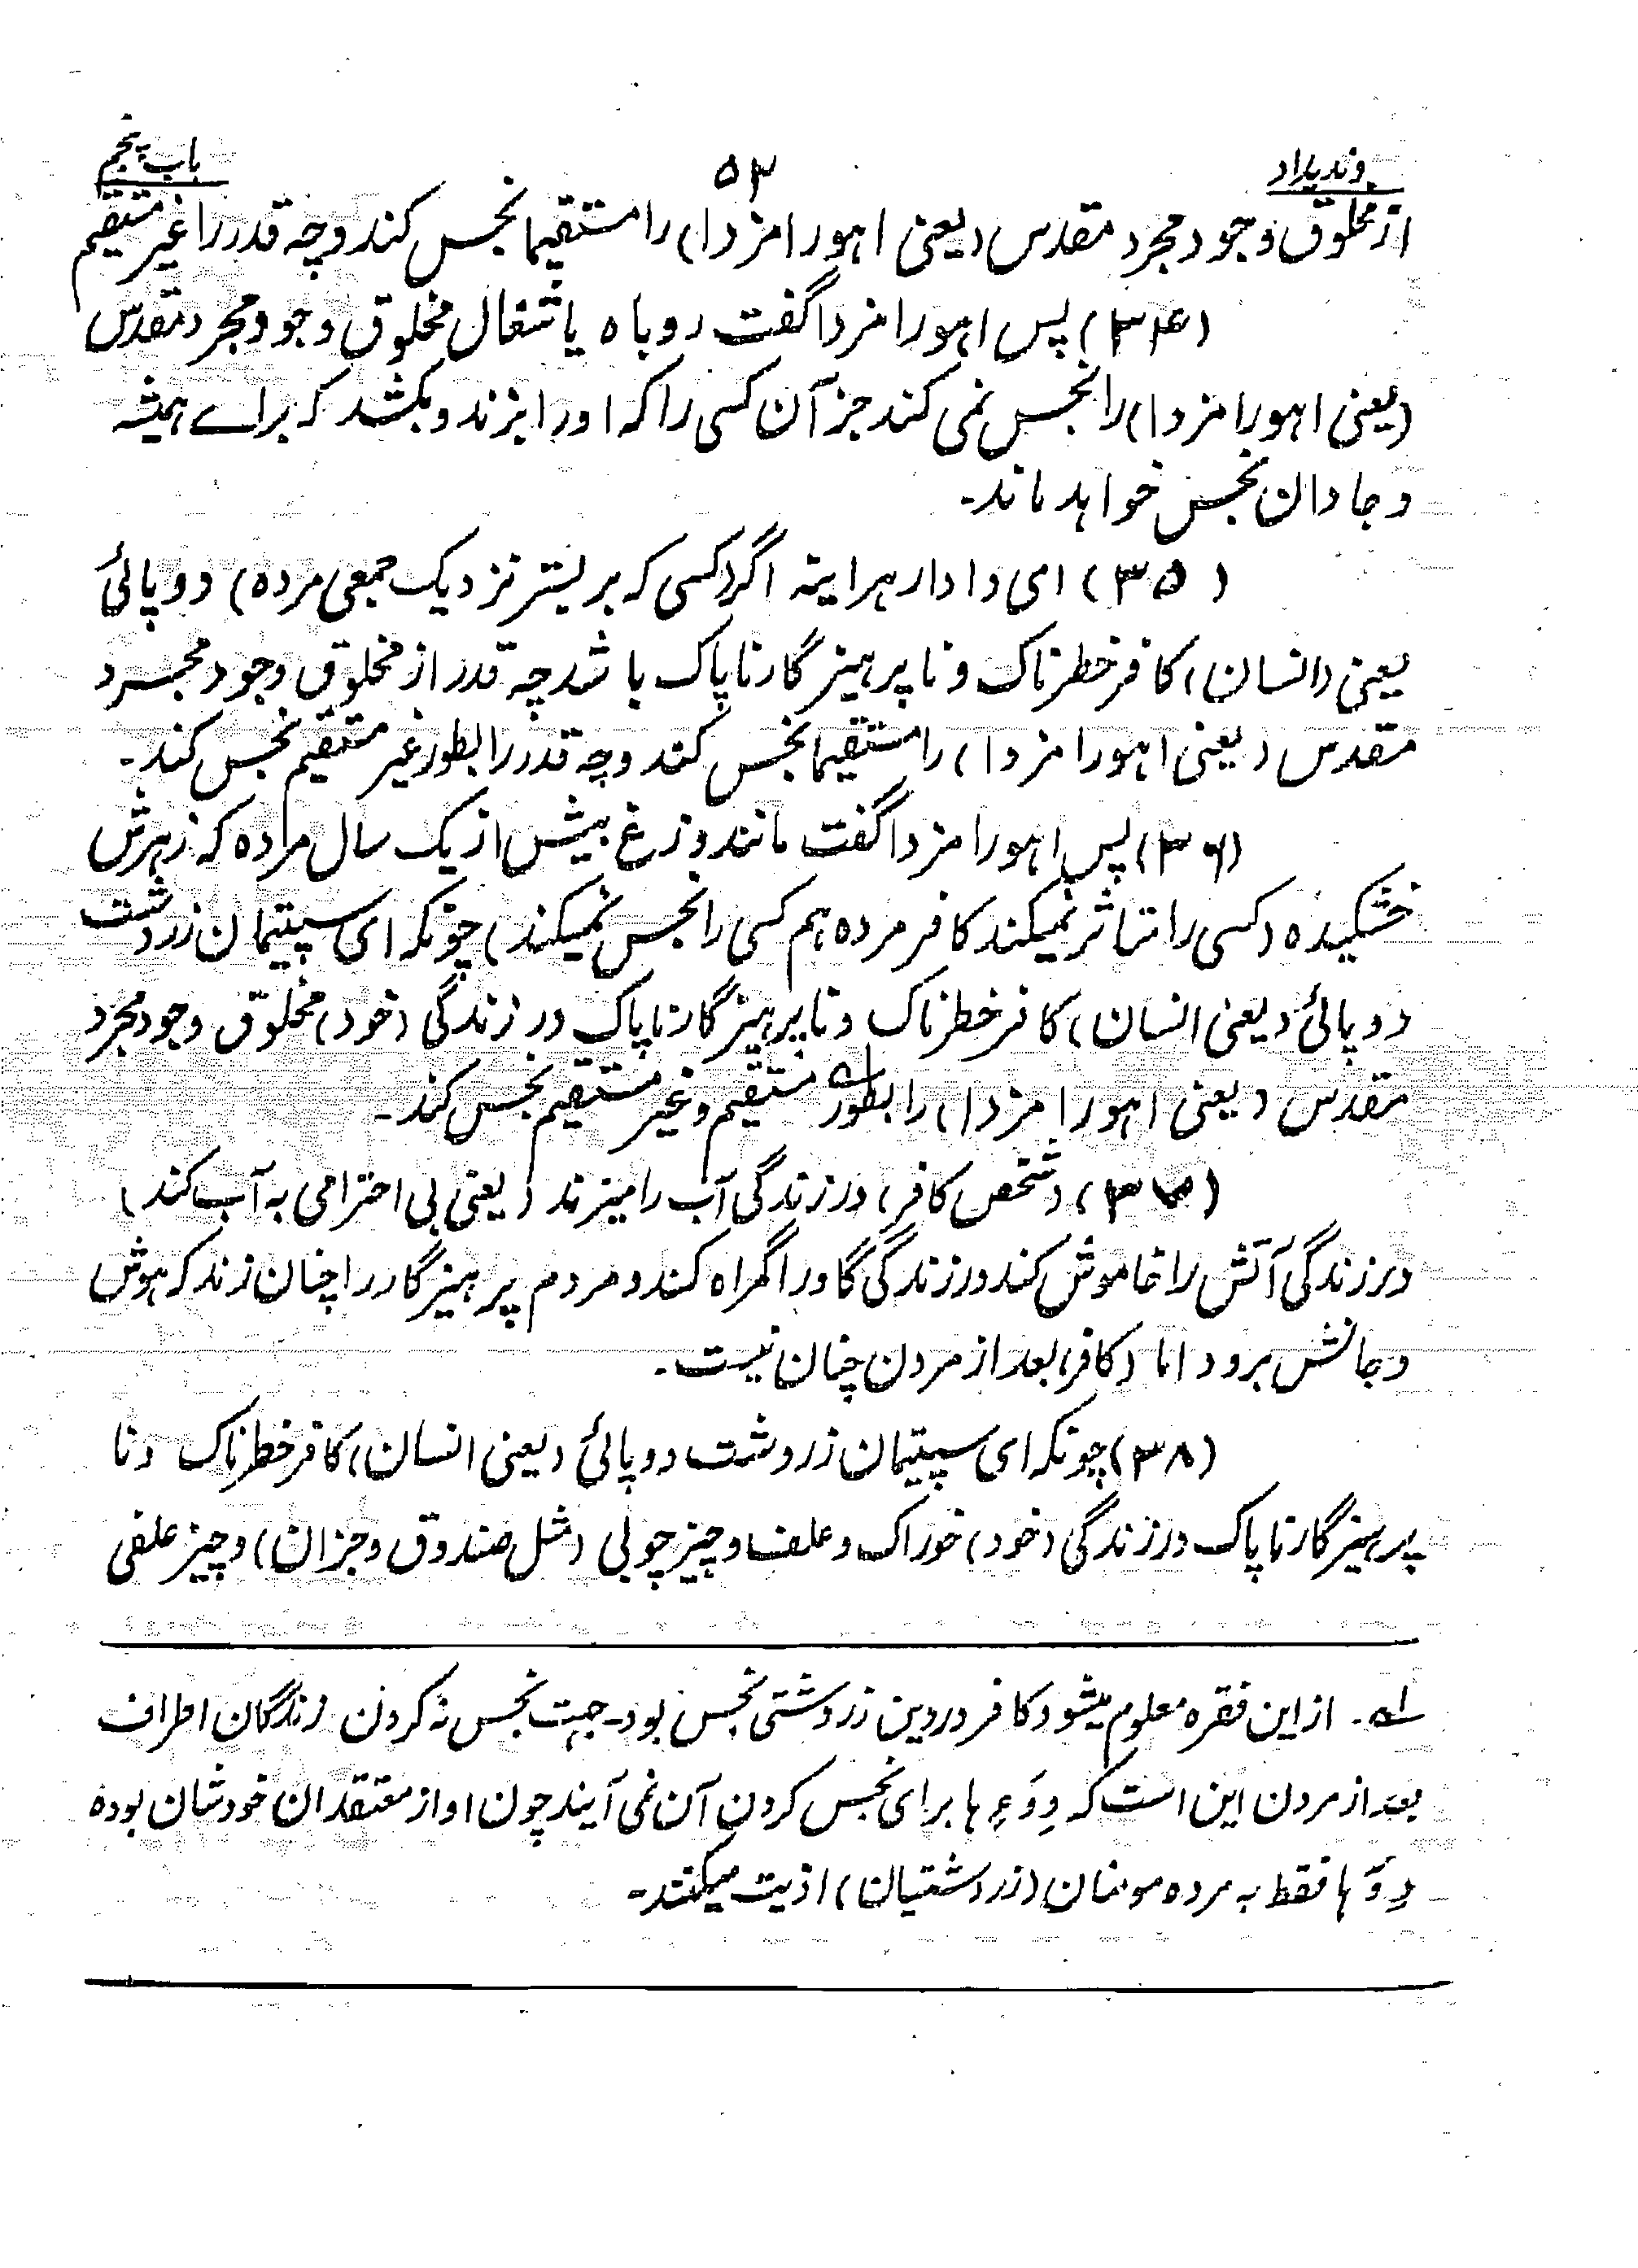 وندیداد
۵۳
باب پنجم
از مخلوق وجود مجرد مقدس (یعنی اهورا مزدا) را مستقیما نجس کند و چه قدر را غیر مستقیم
(۳۴) پس اهورا مزدا گفت روباه یا شغال مخلوق وجود مجرد مقدس
(یعنی اهورا مزدا) را نجس نمی کند جز آن کسی را که او را بزند و بکشد که برای همیشه
و جادان نجس خواهد ماند۔
(۳۵) ای دادار هر اینه اگر (کسی که بر بستر نزدیک جمعی مرده) دوپائی
یعنی (انسان) کافر خطرناک و ناپرهیز گار ناپاک باشد چه قدر از مخلوق وجود مجرد
مقدس (یعنی اهورا مزدا) را مستقیما نجس کند و چه قدر را بطور غیر مستقیم نجس کند۔
(۳۶) پس اهورا مزدا گفت مانند وزغ بیش از یک سال مرده که زهرش
خشکیده (کسی را متاثر نمیکند کافر مرده هم کسی را نجس نمیکند) چونکه ای سپیتمان زردشت
دوپائی (یعنی انسان) کافر خطرناک و ناپرهیز گار ناپاک در زندگی (خود) مخلوق وجود مجرد
مقدس (یعنی اهورا مزدا) را بطور ۱ه مستقیم و غیر مستقیم نجس کند۔
(۳۷) (شخص کافر) در زندگی آب را میزند (یعنی بی احترامی به آب کند)
در زندگی آتش را خاموش کند در زندگی گاو را گمراه کند و مردم پرهیز گار را چنان زند که هوش
و جانش برود اما (کافر) بعد از مردن چنان نیست۔
(۳۸) چونکه ای سپیتمان زردشت دوپائی (یعنی انسان) کافر خطرناک و نا
پرهیز گار ناپاک در زندگی (خود) خوراک و علف و چیز چوبی (مثل صندوق و جز آن) و چیز علفی
۱ه۔ از این فقره معلوم میشود کافر در دین زردشتی نجس بود۔ جهت نجس نه کردن زندگان اطراف
بعد از مردن این است که دِوَء ها برای نجس کردن آن نمی آیند چون او از معتقدان خودشان بوده
دِوَ ها فقط به مرده مومنان (زردشتیان) اذیت میکنند۔